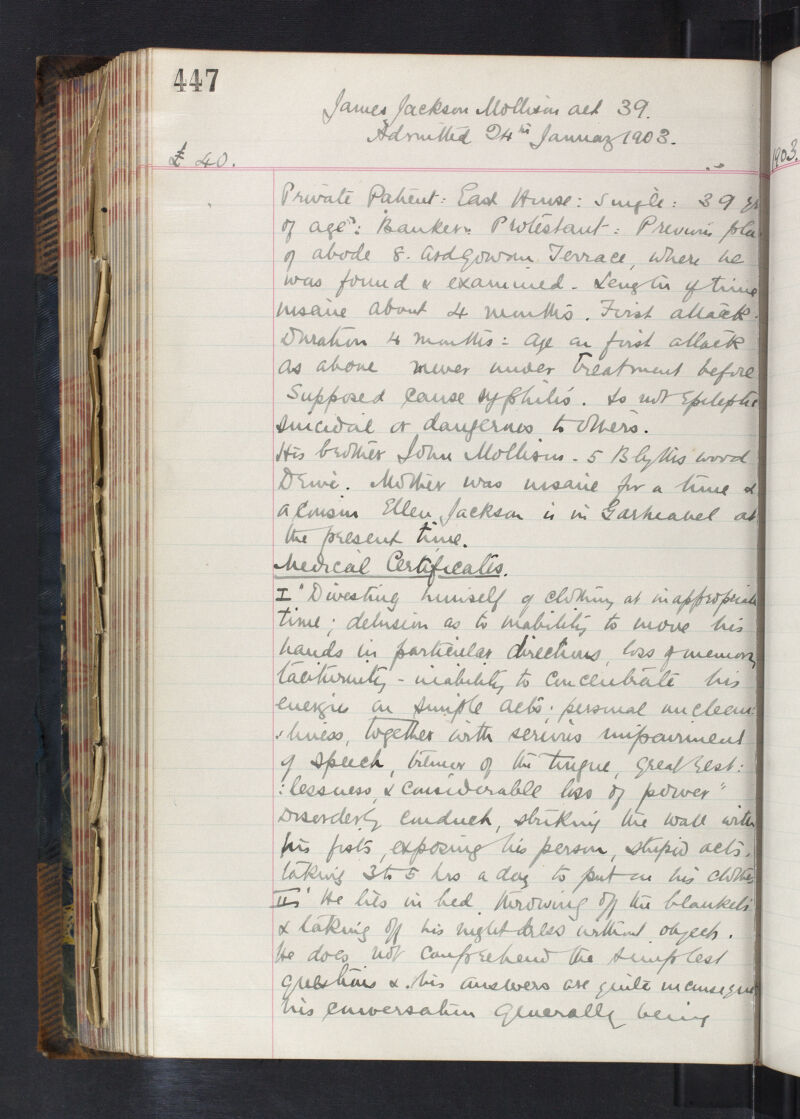 447
James Jackson Mollison aet 39.
Admitted 24th January 1903.
£ 40.
1903.
Private Patient: East House: Single: 39 yrs
of age: Banker: Protestant: Previous place
of abode 8. Ardgowan Terrace, where he
was found & examined. Length of time
insane about 4 months. First attack.
Duration 4 months: Age on first attack
as above never under treatment before
Supposed cause syphilis. Is not Epileptic
suicidal or dangerous to others.
His brother John Mollison - 5 Blythswood
Drive. Mother was insane for a time &
a cousin Ellen Jackson is in Gartnavel at
the present time.
Medical Certificates.
I "Divesting himself of clothing at inappropriate
time; delusion as to inability to move his
hands in particular directions, loss of memory,
taciturnity - inability to concentrate his
energies on simple acts; personal unclean:
:liness, together with serious impairment
of speech, tremor of the tongue, great rest:
:lessness, & considerable loss of power"
Disorderly conduct, striking the wall with
his fists, exposing his person, stupid acts,
taking 3 to 5 hrs a day to put on his clothes
II "He lies in bed throwing off the blankets
& taking off his night dress without object.
He does not comprehend the simplest
questions & his answers are quite inconsequent
his conversation generally being